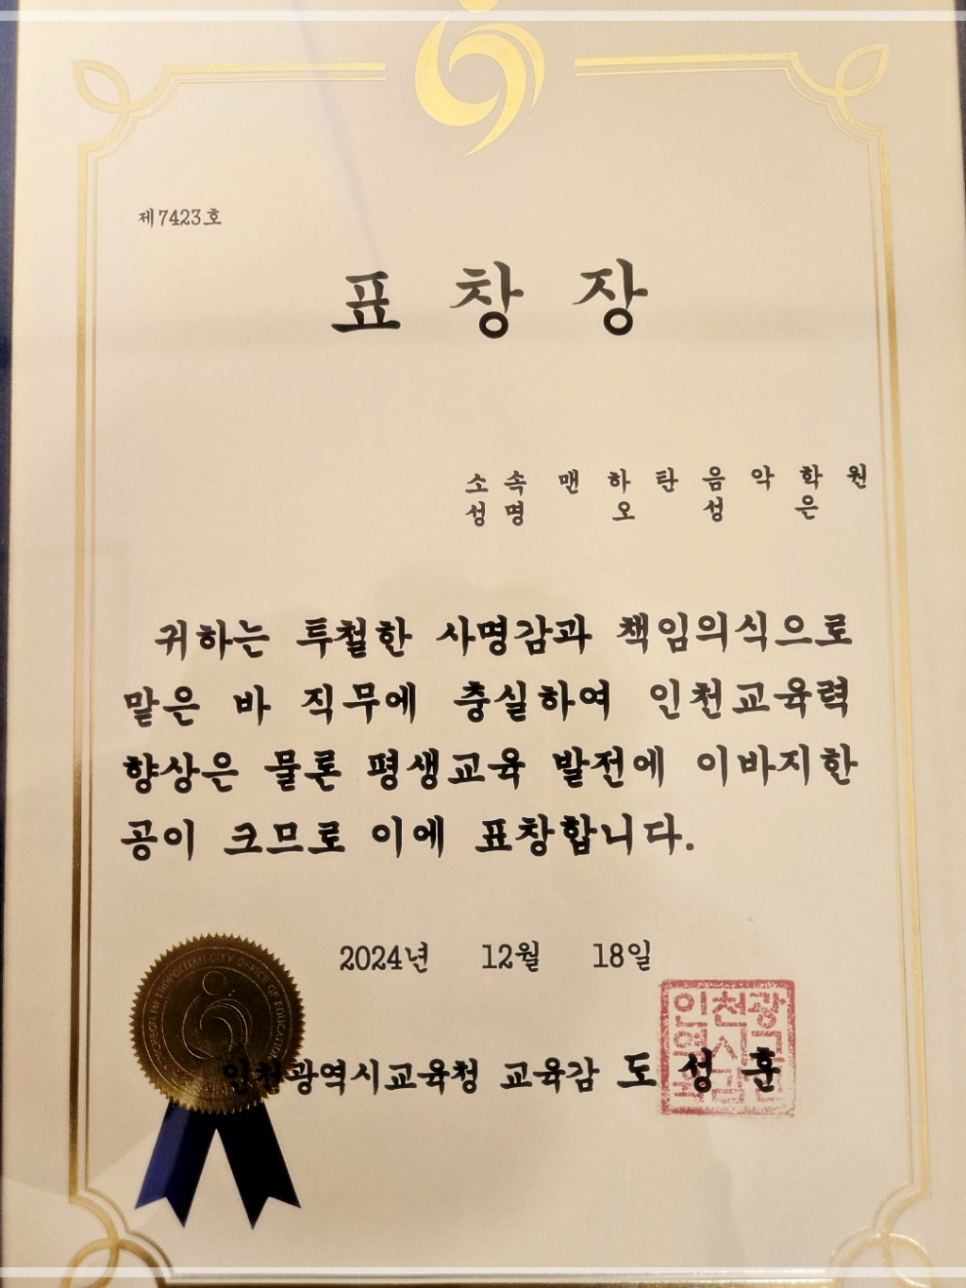 제7423호
표 창 장
소속 맨하탄음악학원
성명 오 성 은
귀하는 투철한 사명감과 책임의식으로
맡은 바 직무에 충실하여 인천교육력
향상은 물론 평생교육 발전에 이바지한
공이 크므로 이에 표창합니다.
2024년 12월 18일
METROPOLITAN CITY OFFICE OF EDUCATION
인천광역시교육청 교육감 도 성 훈
인천광
역시교
육감인